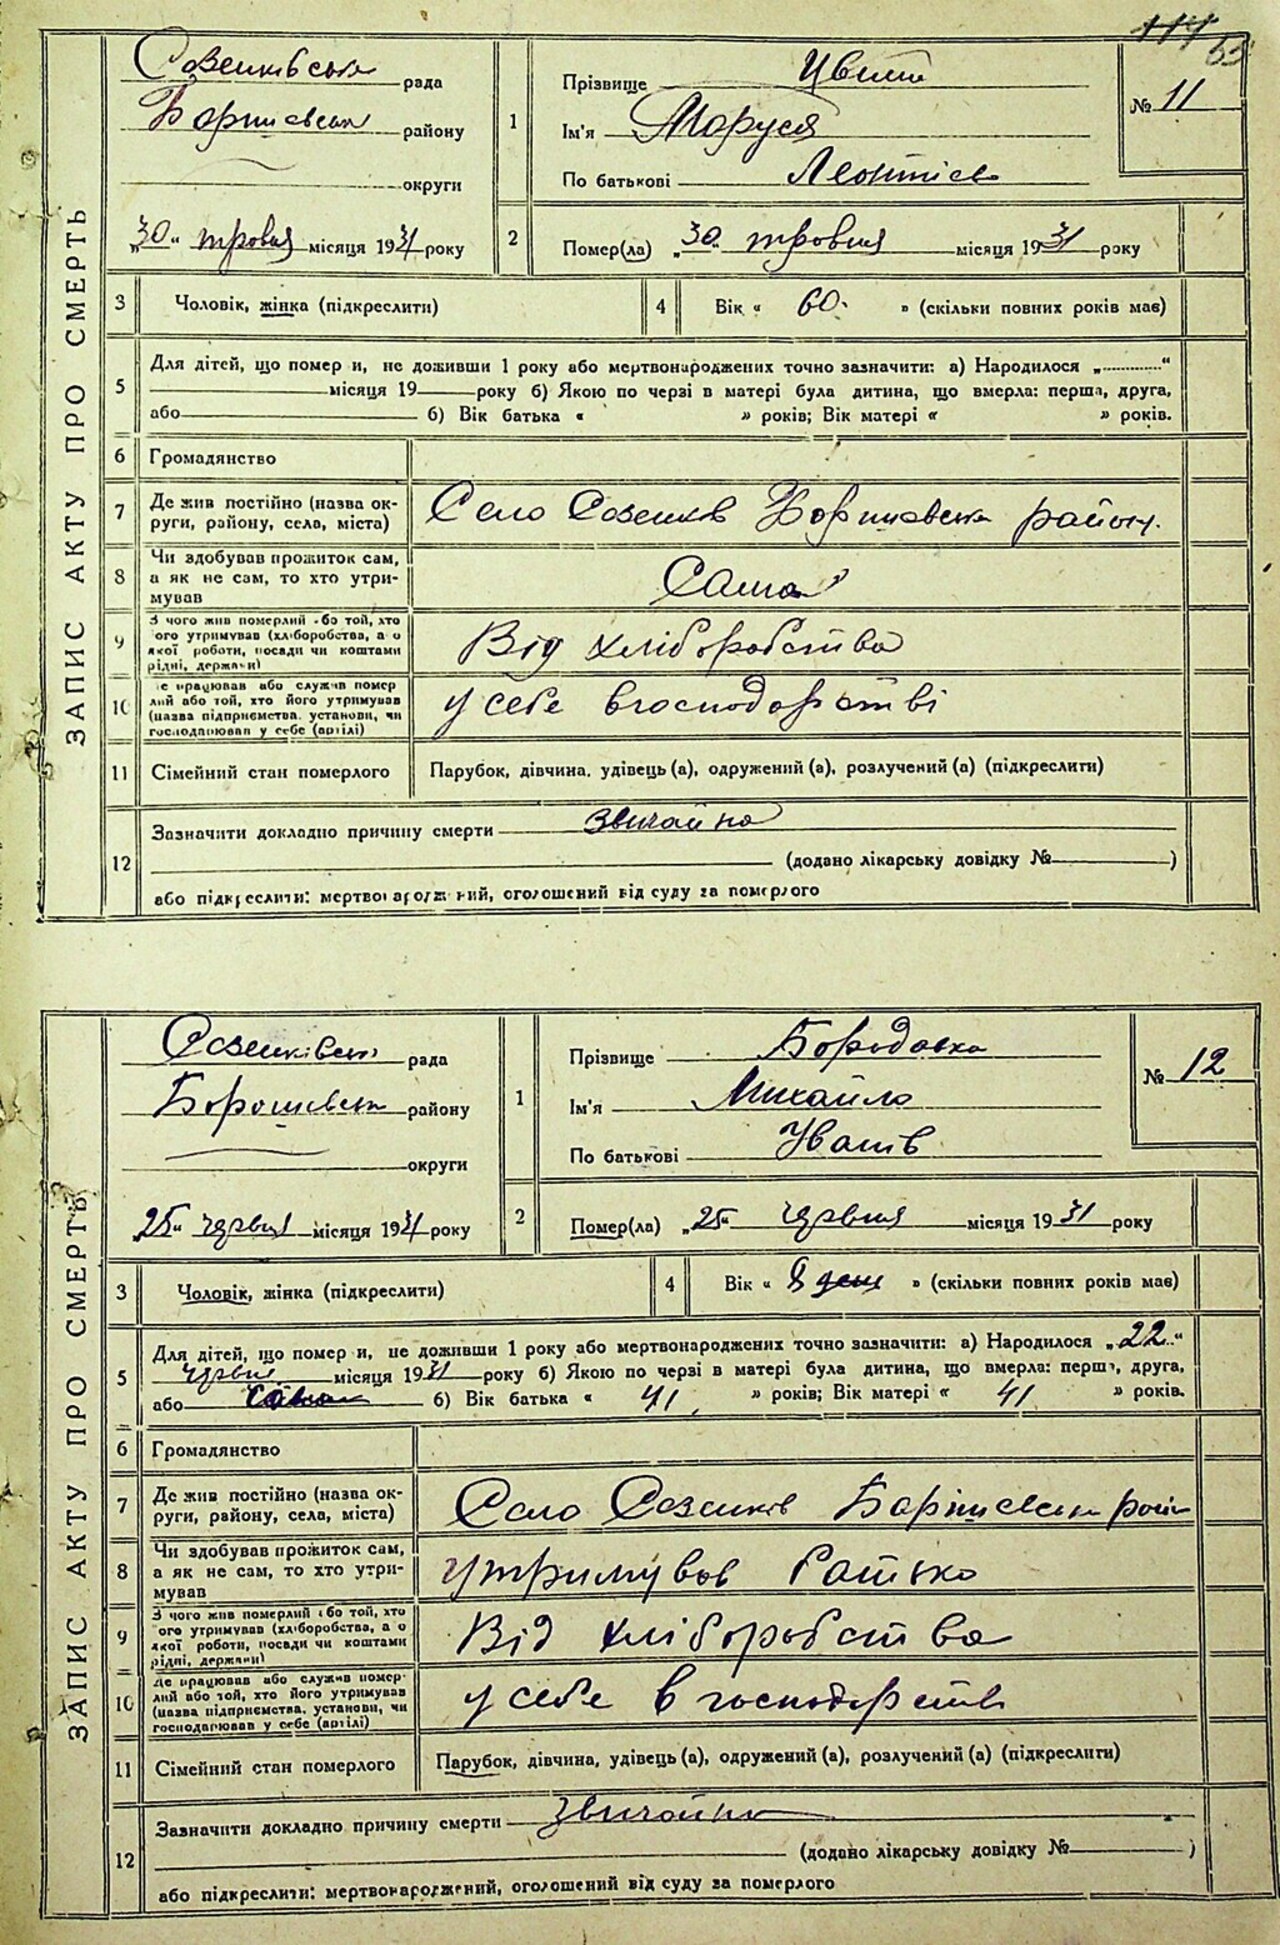 114 53
ЗАПИС АКТУ ПРО СМЕРТЬ
Созенківська рада
Боришевськ району
округи
„30“ тровня місяця 1931 року
1
Прізвище
Ім'я Маруся
По батькові Леонтіев
№ 11
2 Помер(ла) „30“ тровня місяця 1931 року
3 Чоловік, жінка (підкреслити)
4 Вік « 60. » (скільки повних років має)
5 Для дітей, що помер и, не доживши 1 року або мертвонароджених точно зазначити: а) Народилося „............“
місяця 19 року б) Якою по черзі в матері була дитина, що вмерла: перша, друга,
або б) Вік батька « » років; Вік матері « » років.
6 Громадянство
7 Де жив постійно (назва ок-
руги, району, села, міста)
Село Созенків Боришевськ району.
8 Чи здобував прожиток сам,
а як не сам, то хто утри-
мував
Сама
9 З чого жив померлий або той, хто
його утримував (хліборобства, а о
якої роботи, посади чи коштами
рідні, держави)
Від хліборобства
10 Де працював або служив помер
лий або той, хто його утримував
(назва підприємства, установи, чи
господарював у себе (артілі)
у себе вгосподорстві
11 Сімейний стан померлого
Парубок, дівчина, удівець (а), одружений (а), розлучений (а) (підкреслити)
12 Зазначити докладно причину смерти звичайна
(додано лікарську довідку № )
або підкреслити: мертвонароджений, оголошений від суду за померлого
ЗАПИС АКТУ ПРО СМЕРТЬ
Созенківськ рада
Боришевськ району
округи
„25“ червня місяця 1931 року
1
Прізвище Бородавка
Ім'я Михайло
По батькові Іванів
№ 12
2 Помер(ла) „25“ червня місяця 1931 року
3 Чоловік, жінка (підкреслити)
4 Вік « 8 ден » (скільки повних років має)
5 Для дітей, що помер и, не доживши 1 року або мертвонароджених точно зазначити: а) Народилося „22“
червня місяця 1931 року б) Якою по черзі в матері була дитина, що вмерла: перша, друга,
або б) Вік батька « 41 » років; Вік матері « 41 » років.
6 Громадянство
7 Де жив постійно (назва ок-
руги, району, села, міста)
Село Созенків Боришевськ райн
8 Чи здобував прожиток сам,
а як не сам, то хто утри-
мував
утримував батько
9 З чого жив померлий або той, хто
його утримував (хліборобства, а о
якої роботи, посади чи коштами
рідні, держави)
Від хліборобства
10 Де працював або служив помер-
лий або той, хто його утримував
(назва підприємства, установи, чи
господарював у себе (артілі)
у себе в господорстві
11 Сімейний стан померлого
Парубок, дівчина, удівець (а), одружений (а), розлучений (а) (підкреслити)
12 Зазначити докладно причину смерти звичайна
(додано лікарську довідку № )
або підкреслити: мертвонароджений, оголошений від суду за померлого